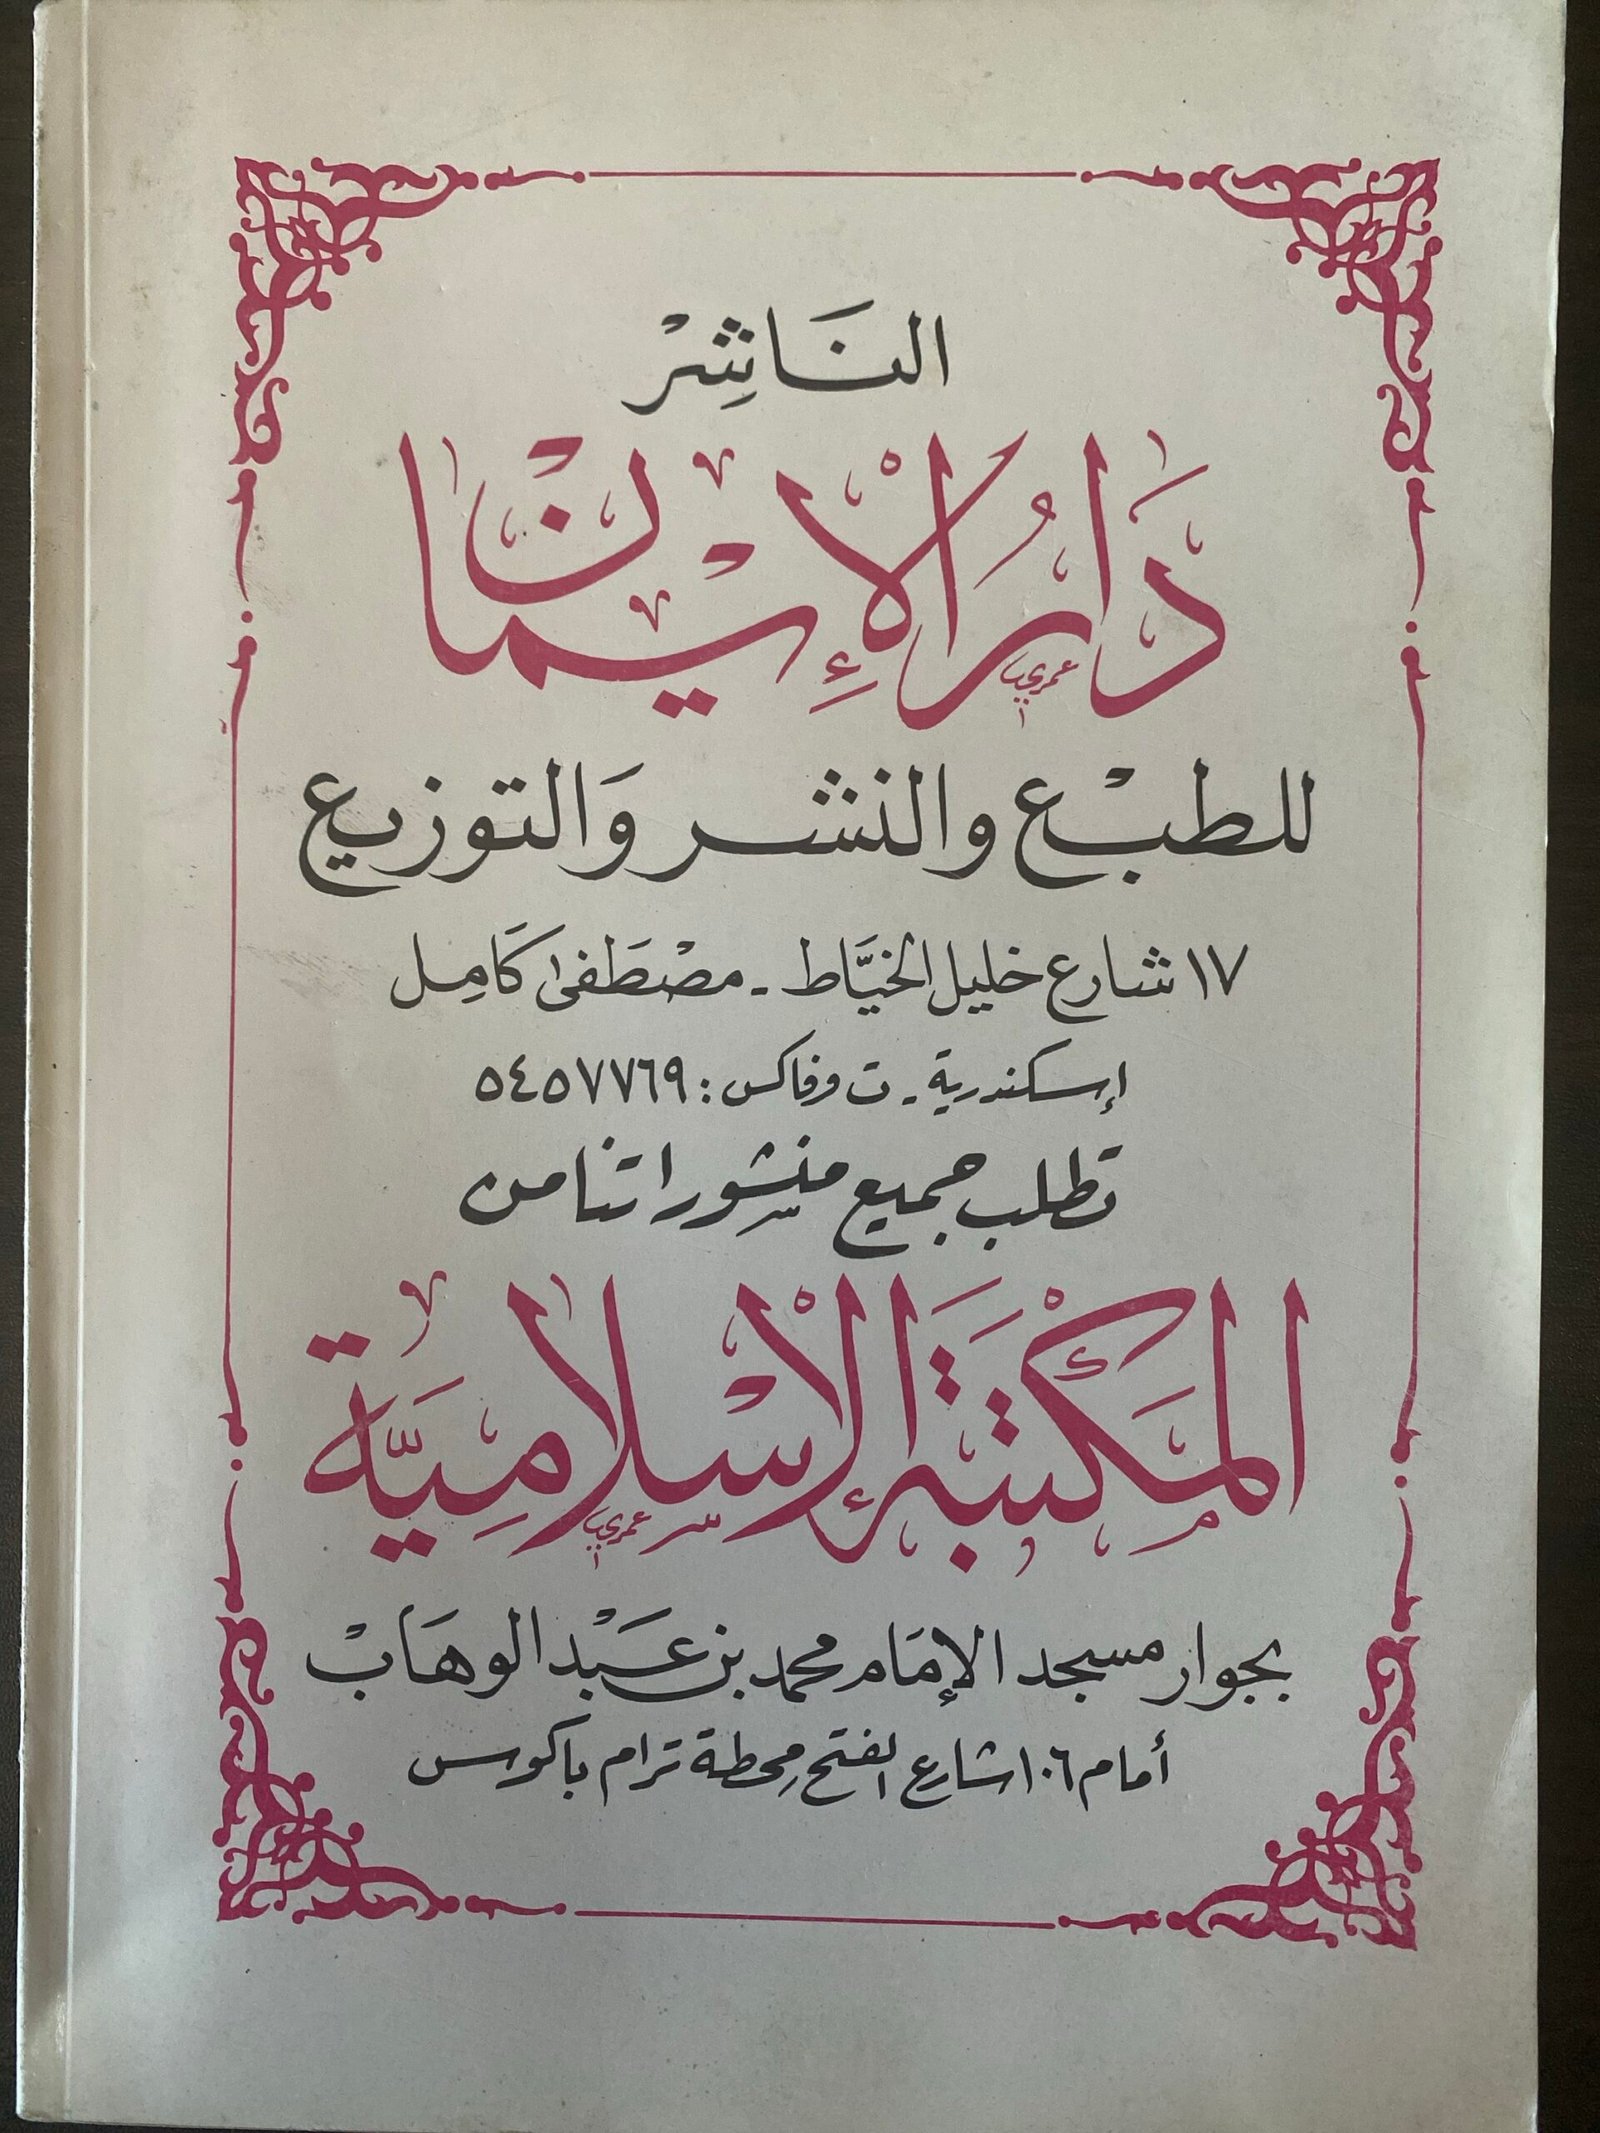 النَاشِرْ
دَارُ الْإِيمَانْ
عمري
للطبْع والنشر وَالتوزيع
١٧ شارع خليل الخيَّاط - مصْطَفىٰ كَامِل
إسكندرية - ت وفاكس : ٥٤٥٧٧٦٩
تطلب جميع منشوراتنا من
المَكْتبَة الْإسْلامِيَّة
عمري
بجوار مسجد الإمَام محمد بن عَبْد الوهَابْ
أمام ١٠٦ شارع الفتح محطة ترام باكوس